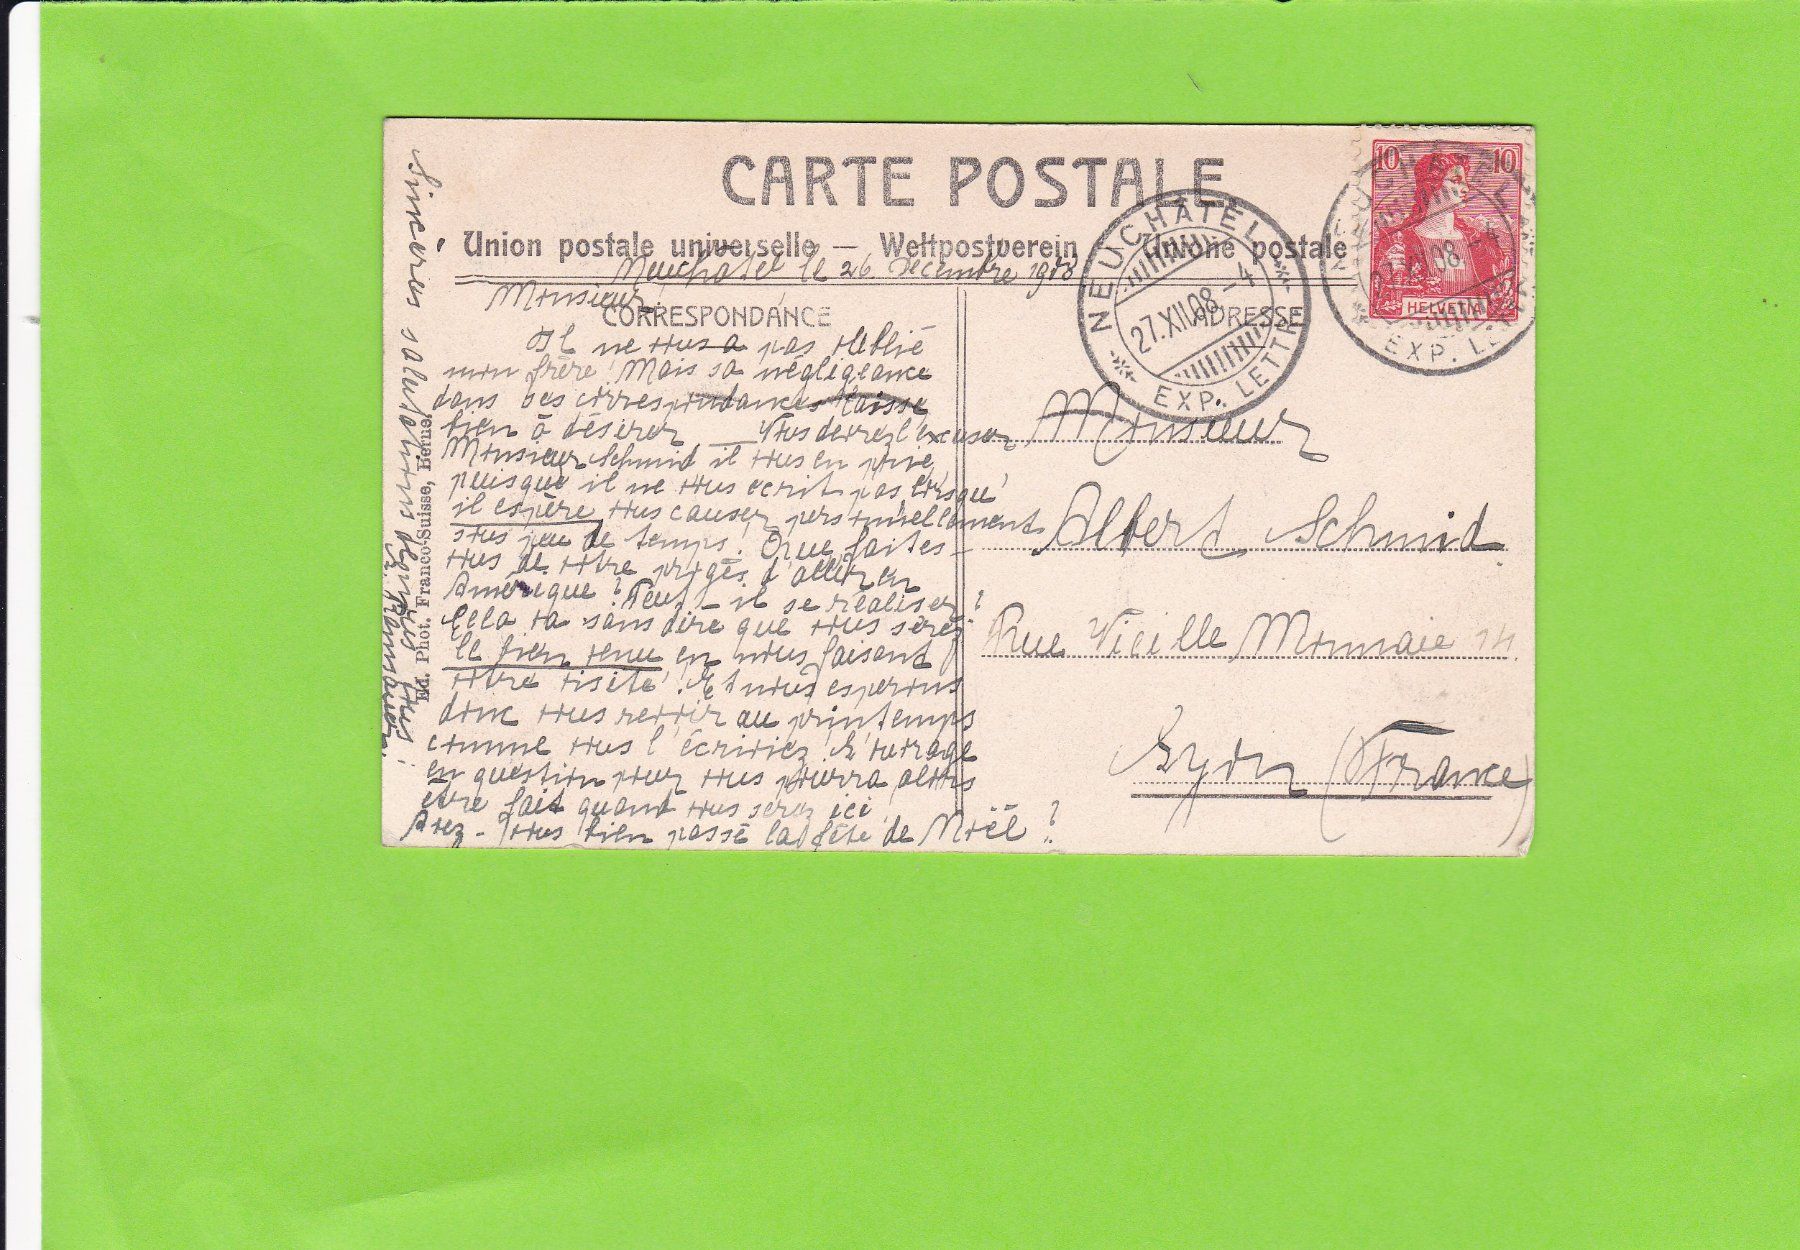 CARTE POSTALE
Union postale universelle — Weltpostverein — Unione postale
Neuchâtel le 26 Décembre 1908
Monsieur!
CORRESPONDANCE
Il ne vous a pas oublié
mon frère! Mais sa négligeance
dans ses correspondances laisse
bien à désirer — Vous devrez l'excuser
Monsieur Schmid il vous en prie,
puisque il ne vous écrit pas lorsqu'
il espère vous causer personnellement
sous peu de temps! Que faites-
vous de votre progès d'aller en
Amérique? Peut-il se réaliser?
Cela va sans dire que vous serez
le bien venu en nous faisant
votre visite! Et nous esperons
donc vous revoir au printemps
comme vous l'écriviez! L'ouvrage
en question pour vous pourra alors
être fait quand vous serez ici,
Avez-vous bien passé la fête de Noël?
Sincères salutations de nous tous
Ed. Phot. Franco-Suisse, Berne.
ADRESSE
Monsieur
Albert Schmid
Rue Vieille Monnaie 14.
Lyon (France)
NEUCHÂTEL
27.XII.08 - 4
EXP. LETTR.
10 10
HELVETIA
NEUCHÂTEL
27.XII.08 - 4
EXP. LE